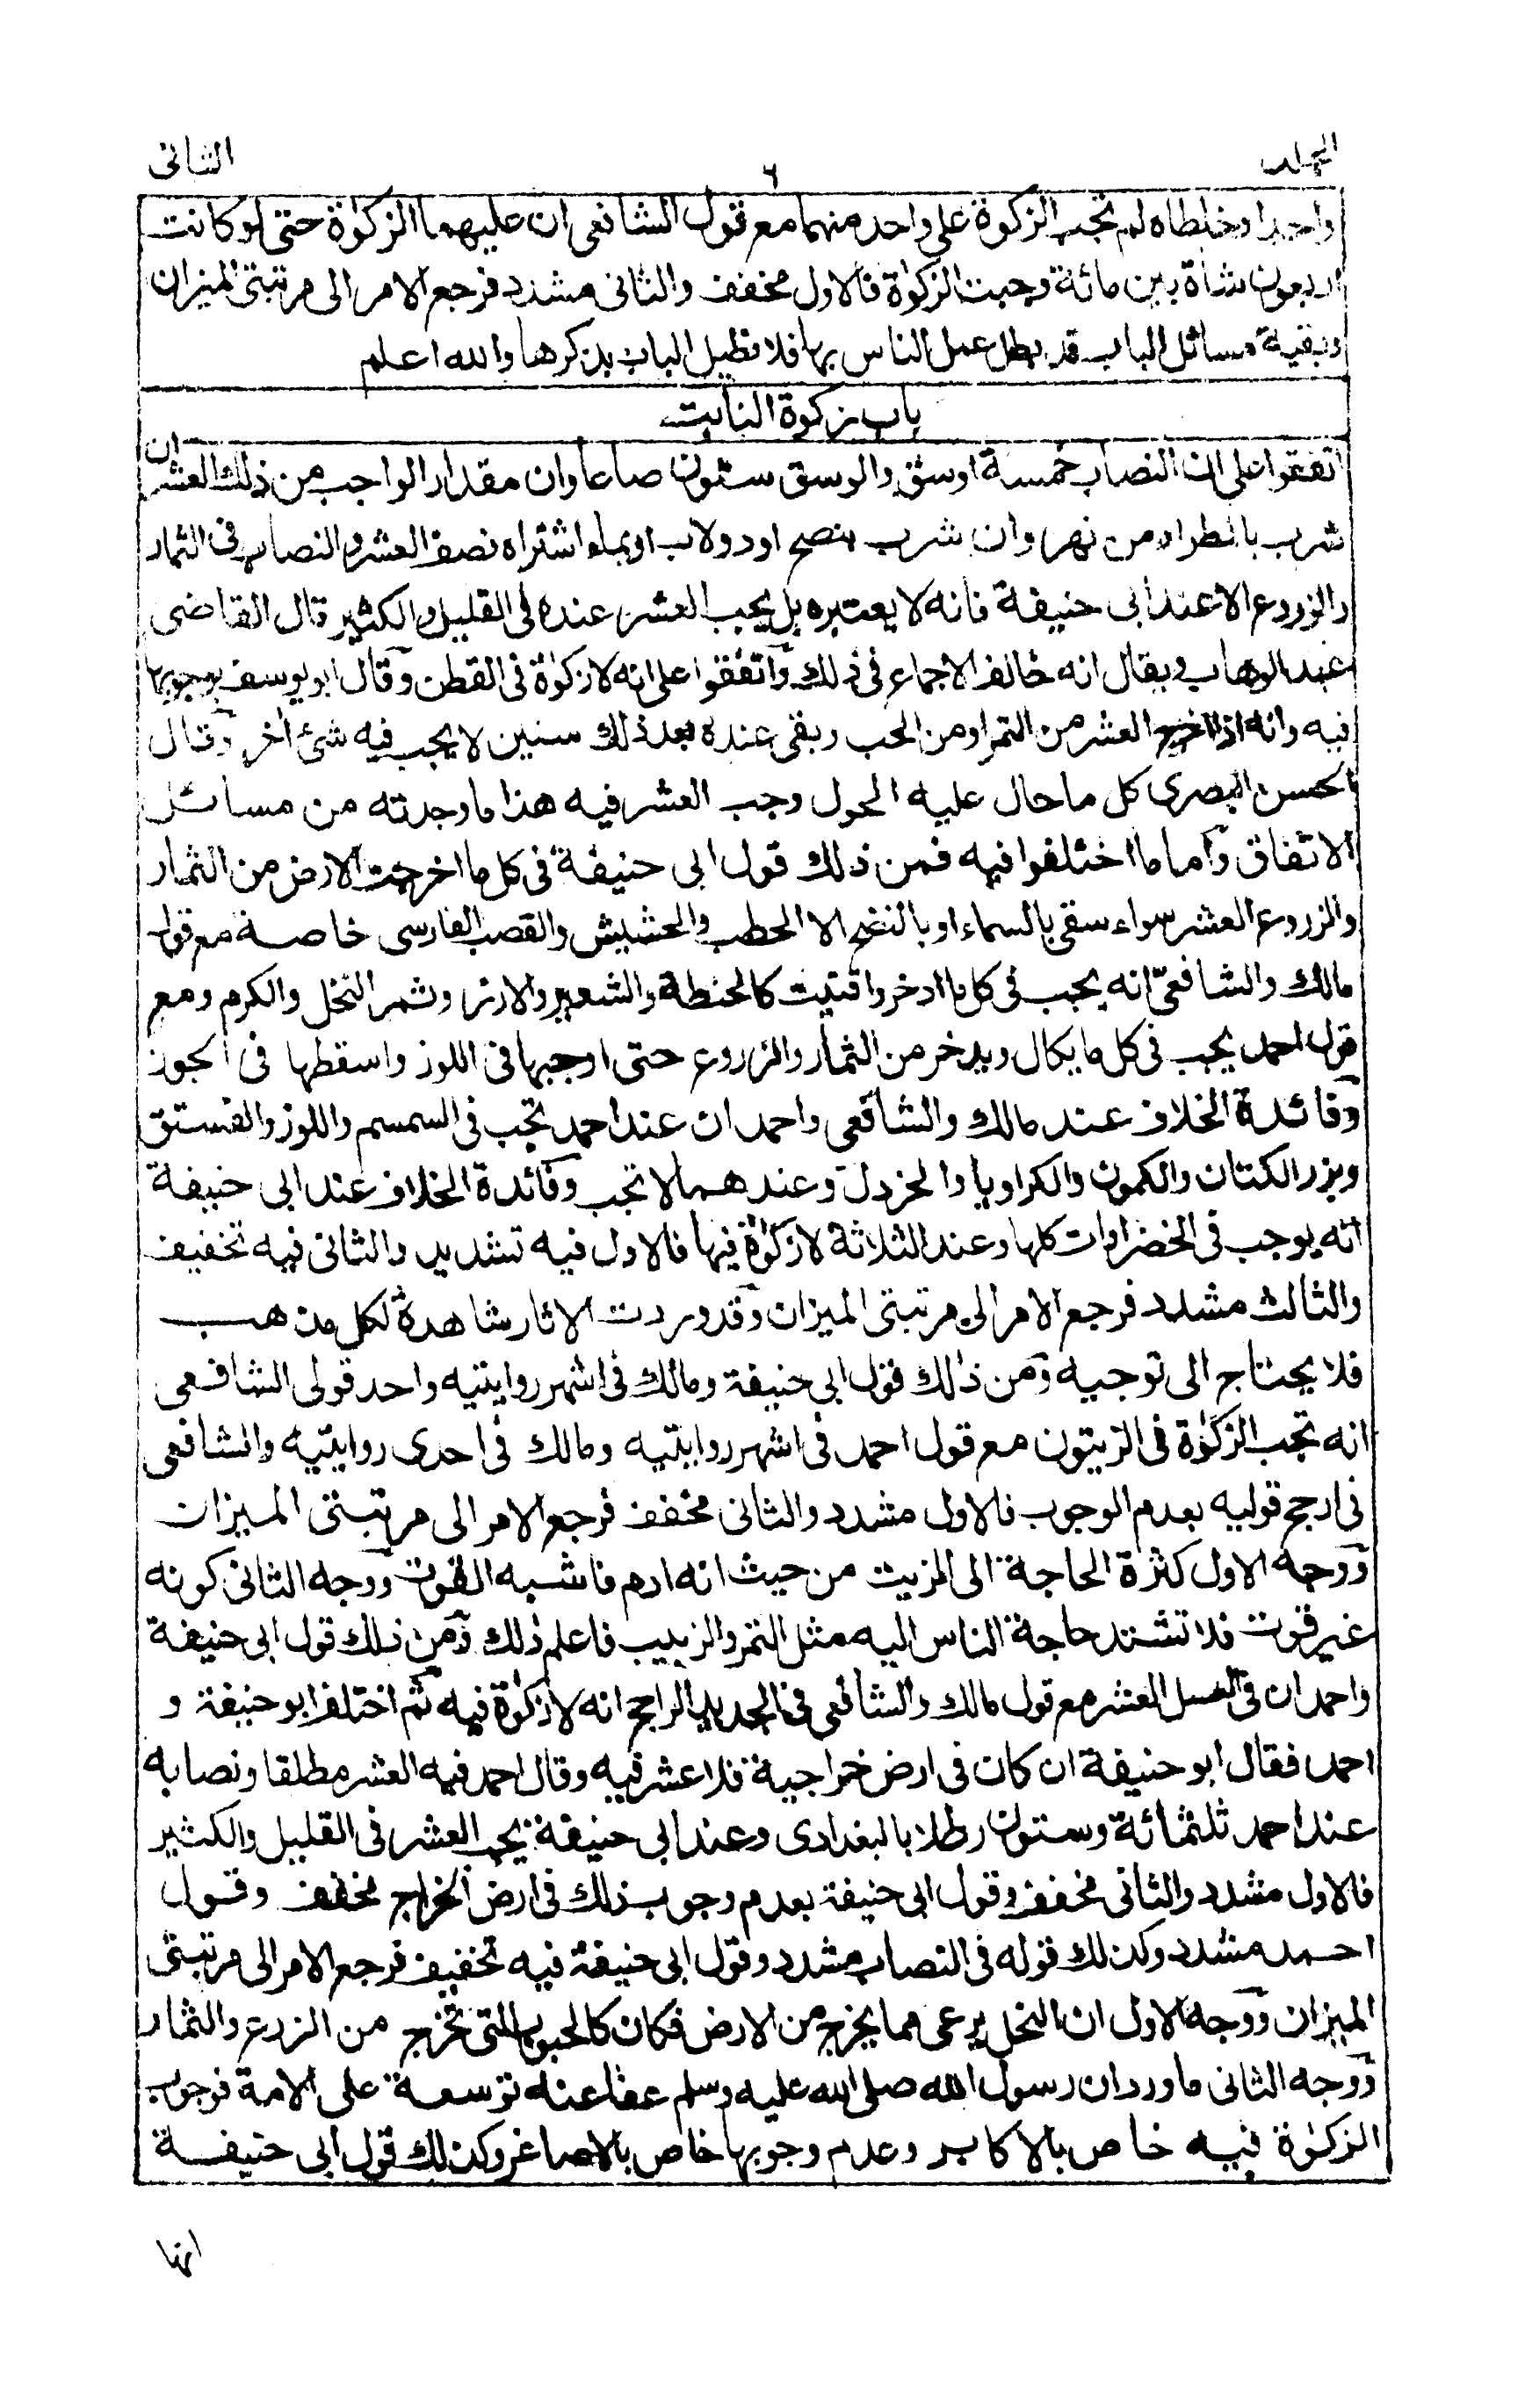 المجلد ٦ الثانى
واحدا وخلطاه لم تجب الزكوة على واحد منهما مع قول الشافعى ان عليهما الزكوٰة حتى لو كانت
اربعون شاة بين مائة وجبت الزكوٰة فالاول مخفف والثانى مشدد فرجع الامر الى مرتبتى الميزان
وبقية مسائل الباب قد بطل عمل الناس بها فلا نطيل الباب بذكرها والله اعلم
باب زكوة النابت
اتفقوا على ان النصاب خمسة اوسق والوسق ستون صاعا وان مقدار الواجب من ذلك العشر ان
شرب بالمطر او من نهر وان شرب بنضح او دولاب او بماء اشتراه نصف العشر والنصاب فى الثمار
والزروع الا عند ابى حنيفة فانه لا يعتبره بل يجب العشر عنده فى القليل والكثير قال القاضى
عبد الوهاب ويقال انه خالف الاجماع فى ذلك واتفقوا على انه لا زكوٰة فى القطن وقال ابو يوسف بوجوبها
فيه وانه اذا اخرج العشر من التمر او من الحب وبقى عنده بعد ذلك سنين لا يجب فيه شئ اخر وقال
الحسن البصرى كل ما حال عليه الحول وجب العشر فيه هذا ما وجدته من مسائل
الاتفاق واما ما اختلفوا فيه فمن ذلك قول ابى حنيفة فى كل ما اخرجت الارض من الثمار
والزروع العشر سواء سقى بالسماء او بالنضح الا الحطب والحشيش والقصب الفارسى خاصة مع قول
مالك والشافعىّ انه يجب فى كل ما ادخر واقتيت كالحنطة والشعير والارز وثمر النخل والكرم ومع
قول احمد يجب فى كل ما يكال ويدخر من الثمار والزروع حتى اوجبها فى اللوز واسقطها فى الجوز
وفائدة الخلاف عند مالك والشافعى واحمد ان عند احمد تجب فى السمسم واللوز والفستق
وبزر الكتان والكمون والكراويا والخردل وعندهما لا تجب وفائدة الخلاف عند ابى حنيفة
انه يوجب فى الخضراوات كلها وعند الثلاثة لا زكوٰة فيها فالاول فيه تشديد والثانى فيه تخفيف
والثالث مشدد فرجع الامر الى مرتبتى الميزان وقد وردت الاثار شاهدة لكل مذهب
فلا يحتاج الى توجيه ومن ذلك قول ابى حنيفة ومالك فى اشهر روايتيه واحد قولى الشافعى
انه تجب الزكوٰة فى الزيتون مع قول احمد فى اشهر روايتيه ومالك فى احدى روايتيه والشافعى
فى ارجح قوليه بعدم الوجوب فالاول مشدد والثانى مخفف فرجع الامر الى مرتبتى الميزان
ووجه الاول كثرة الحاجة الى الزيت من حيث انه ادم فاشبه القوت ووجه الثانى كونه
غير قوت فلا تشتد حاجة الناس اليه مثل التمر والزبيب فاعلم ذلك ومن ذلك قول ابى حنيفة
واحمد ان فى العسل العشر مع قول مالك والشافعى فى الجديد الراجح انه لا زكوٰة فيه ثم اختلف ابو حنيفة و
احمد فقال ابو حنيفة ان كان فى ارض خراجية فلا عشر فيه وقال احمد فيه العشر مطلقا ونصابه
عند احمد ثلثمائة وستون رطلا بالبغدادى وعند ابى حنيفة يجب العشر فى القليل والكثير
فالاول مشدد والثانى مخفف وقول ابى حنيفة بعدم وجوب ذلك فى ارض الخراج مخفف وقول
احمد مشدد وكذلك قوله فى النصاب مشدد وقول ابى حنيفة فيه تخفيف فرجع الامر الى مرتبتى
الميزان ووجه الاول ان النحل يرعى مما يخرج من الارض فكان كالحبوب التى تخرج من الزرع والثمار
ووجه الثانى ما ورد ان رسول الله صلى الله عليه وسلم عفا عنه توسعة على الامة فوجوب
الزكوٰة فيه خاص بالاكابر وعدم وجوبها خاص بالاصاغر وكذلك قول ابى حنيفة
انها